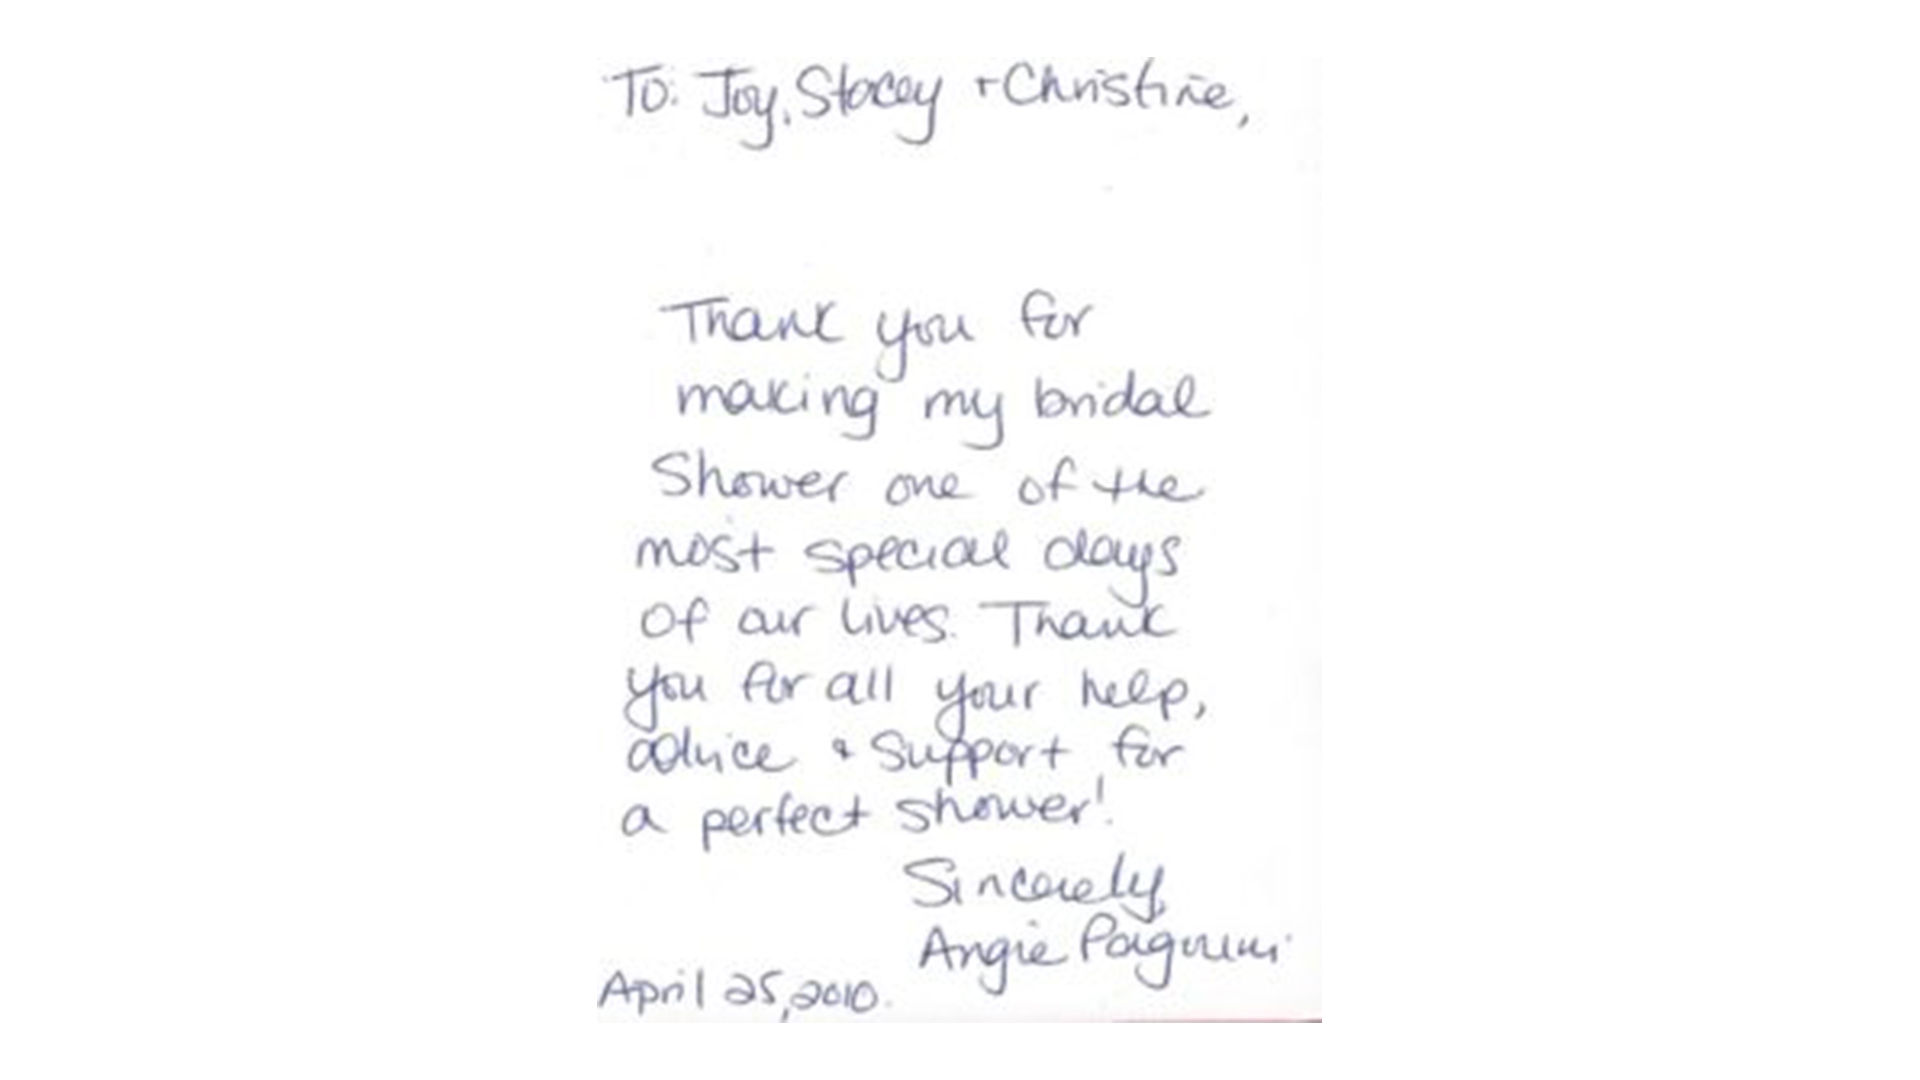 To: Joy, Stacey + Christine,
Thank you for
making my bridal
Shower one of the
most special days
of our lives. Thank
you for all your help,
advice & Support for
a perfect shower!
Sincerely,
Angie
April 25, 2010.